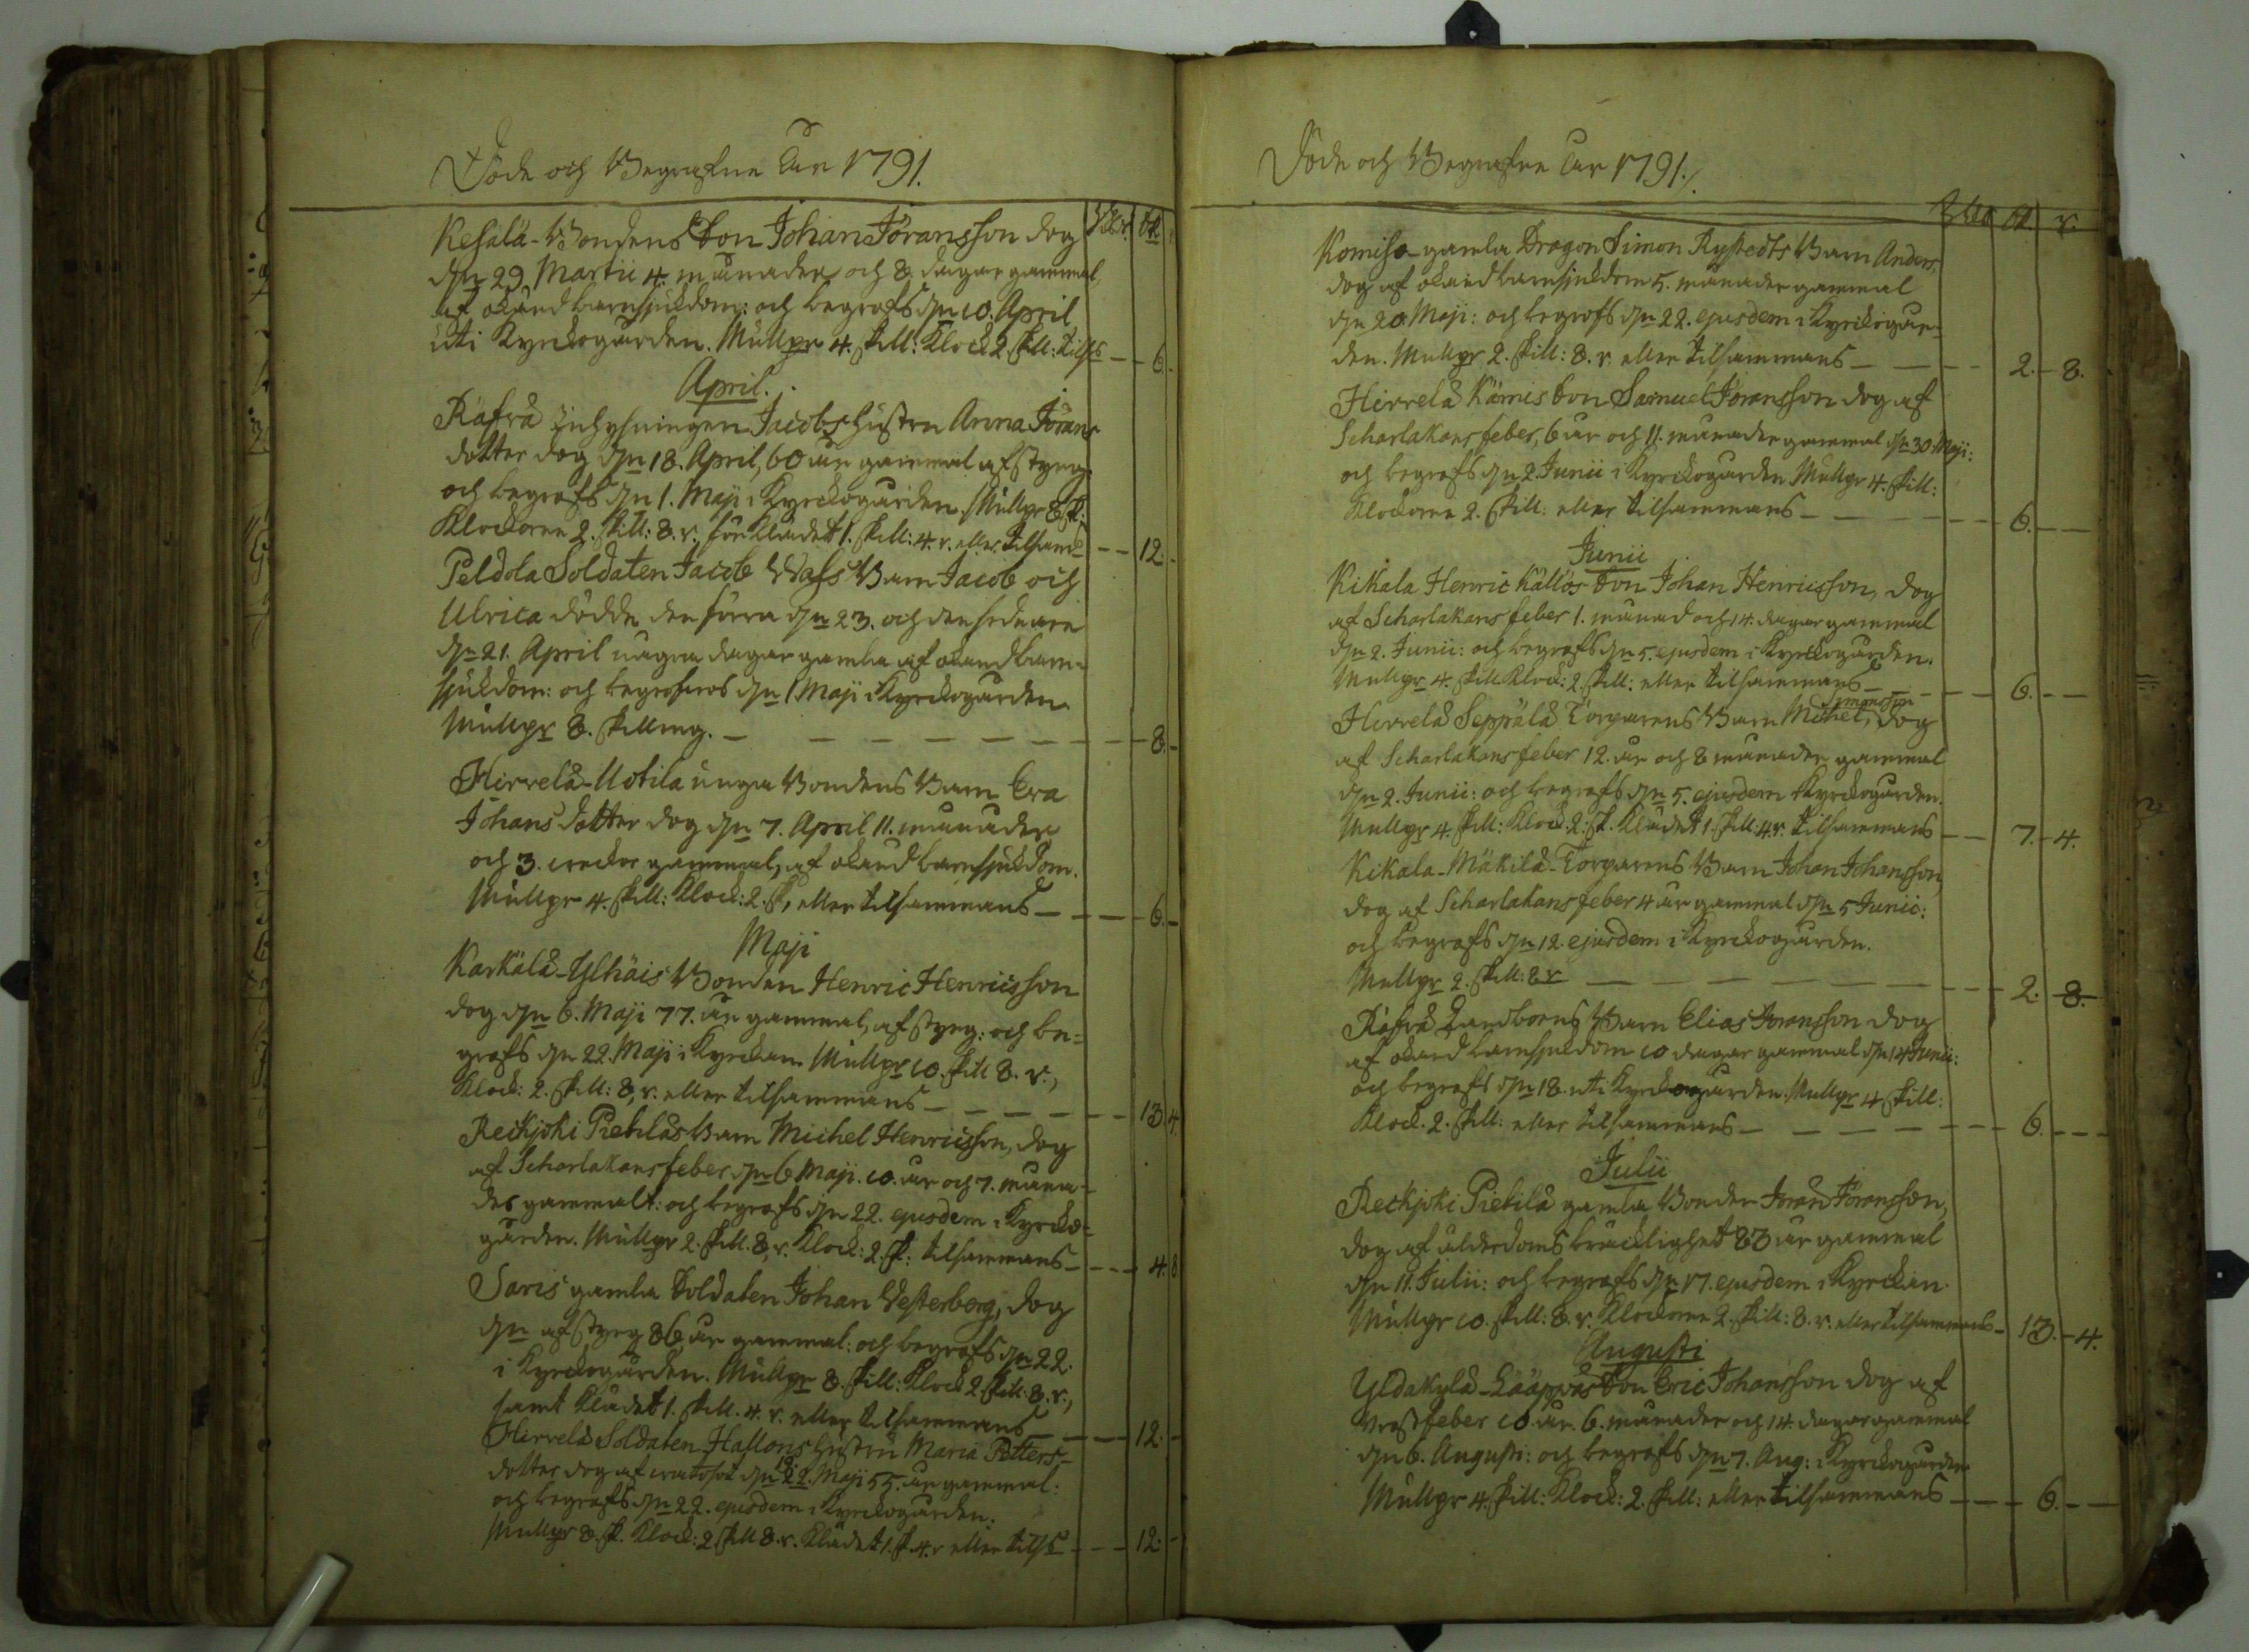 Döde och Begrafne År 1791.
Kesala-Bondens Son Johan Jöransson dog
d:n 29 Martii 4. månader och 8. dagar gammal
af okänd barnsjukdom: och begrofs d:n 10. April
uti Kyrckogården. Mullpr 4. skill: Klock 2. skill: tilhs — 6.
April.
Räfvå Inhysningen Jacobs Hustru Anna Jörans
dotter dog d:n 18. April, 60 år gammal af styng
och begrofs d:n 1. Maji i Kyrckogården. Mullpr 8 sk.
Klockaren 2. skill: 8. r. för klädet 1. skill: 4. r. eller tilsams — 12.
Peldola Soldaten Jacob Barn Jacob och
Ulrica dödde den förra d:n 23. och den sednare
d:n 21. April några dagar gamla af okänd barn-
sjukdom: och begrofwos d:n 1 Maji i Kyrckogården
Mullpr 8. skilling. — 8.
Hirvelä-Uotila unga Bondens Barn Eva
Johans dotter dog d:n 7. April 11. månader
och 3. weckor gammal, af okänd barnsjukdom.
Mullpr 4. skill: Klock: 2. sk, eller tilsammans — 6.
Maji
Karkälä-Ylhäis Bonden Henric Henricsson
dog d:n 6. Maji 77. år gammal, af styng: och be-
grofs d:n 22. Maji i Kyrckan. Mullpr 10. skill 8. r.,
Klock: 2. skill: 8, r. eller tilsammans — 13. 4.
Reckjoki Pietiläs Barn Michel Henricsson, dog
af Scharlakansfeber d:n 6 Maji. 10. år och 7. måna-
der gammalt: och begrofs d:n 22. ejusdem i Kyrcko-
gården. Mullpr 2. skill. 8, r. Klock: 2. sk: tilsammans — 4. 8
Saris gamla Soldaten Johan Vesterberg, dog
d:n af styng 86 år gammal: och begrofs d:n 22.
i Kyrckogården. Mullpr 8. skill: Klock 2 skill: 8. r.,
samt klädet 1. skill. 4. r. eller tilsammans — 12.
Hirvelä Soldaten Hallons Hustru Maria Petters-
dotter dog af d:n 22. Maji 55. år gammal:
och begrofs d:n 22. ejusdem i Kyrckogården.
Mullpr 8. sk. Klock: 2 skill 8. r. Klädet 1. sk. 4. r eller tilhs — 12.
Döde och Begrafne År 1791.
sk. r.
Komiso-gamla Dragon Simon Rystedts Barn Anders,
dog af okänd barnsjukdom 5. månader gammal
d:n 20. Maji: och begrofs d:n 22. ejusdem i Kyrckogår-
den. Mullpr 2. skill: 8. r. eller tilsammans — 2. 8.
Hirvelä Kämis Son Samuel Jöransson dog af
Scharlakans feber, 6 år och 11. månader gammal d:n 30 Maji:
och begrofs d:n 2. Junii i Kyrckogården Mullpr 4. skill:
Klockaren 2. skill: eller tilsammans — 6.
Junii
Kikala Henric Källös Son Johan Henricsson, dog
af Scharlakans feber 1. månad och 14. dagar gammal
d:n 2. Junii: och begrofs d:n 5. ejusdem i Kyrckogården.
Mullpr 4. skill. Klock: 2. skill: eller tilsammans — 6.
Simonsson
Hirvelä Seppälä Torparens Barn Michel, dog
af Scharlakansfeber 12. år och 8 månader gammal
d:n 2. Junii: och begrofs d:n 5. ejusdem i Kyrckogården.
Mullpr 4. skill: Klock. 2. sk. Klädet 1. skill: 4. r. tilsammans — 7. 4.
Kikala-Mäkilä-Torparens Barn Johan Johansson,
dog af Scharlakansfeber 4 år gammal d:n 5 Junii:
och begrofs d:n 12. ejusdem i Kyrckogården.
Mullpr 2. skill: 8 r — 2. 8.
Räfvå Landboens Barn Elias Jöransson dog
af okänd barnsjukdom 10 dagar gammal d:n 14 Junii:
och begrofs d:n 18. uti Kyrckogården. Mullpr 4. skill:
Klock. 2. skill: eller tilsammans — 6.
Julii
Reckjoki Pietilä gamla Bonden Jöran Jöransson,
dog af ålderdoms bräcklighet 83 år gammal
d:n 11. Julii: och begrofs d:n 17. ejusdem i Kyrckan.
Mullpr 10. skill: 8. r. Klockaren 2. skill: 8. r. eller tilsammans — 13. 4.
Augusti
Yldakylä-Lääppäs Son Eric Johansson dog af
feber 10. år. 6. månader och 14. dagar gammal
d:n 6. Augusti: och begrofs d:n 7. Aug: i Kyrckogården
Mullpr 4. skill: Klock: 2. skill: eller tilsammans — 6.